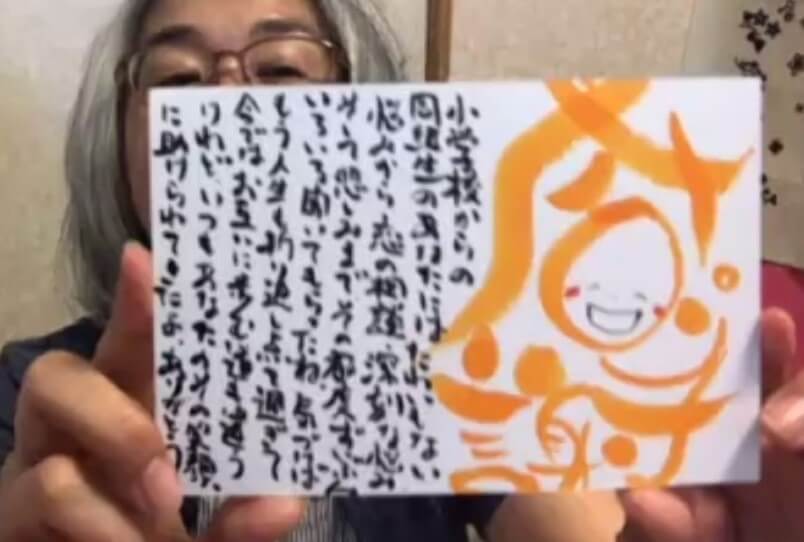 小学校からの
同級生のあなたにはたわいもない
悩みから恋の相談、深刻な悩み
そう悲しみまでその都度ずいぶん
いろいろ聞いてもらったね。気づけば
もう人生も折り返し点を過ぎて
今ではお互いに歩む道も違う
けれど、いつもあなたのその笑顔
に助けられてきたよ、ありがとう